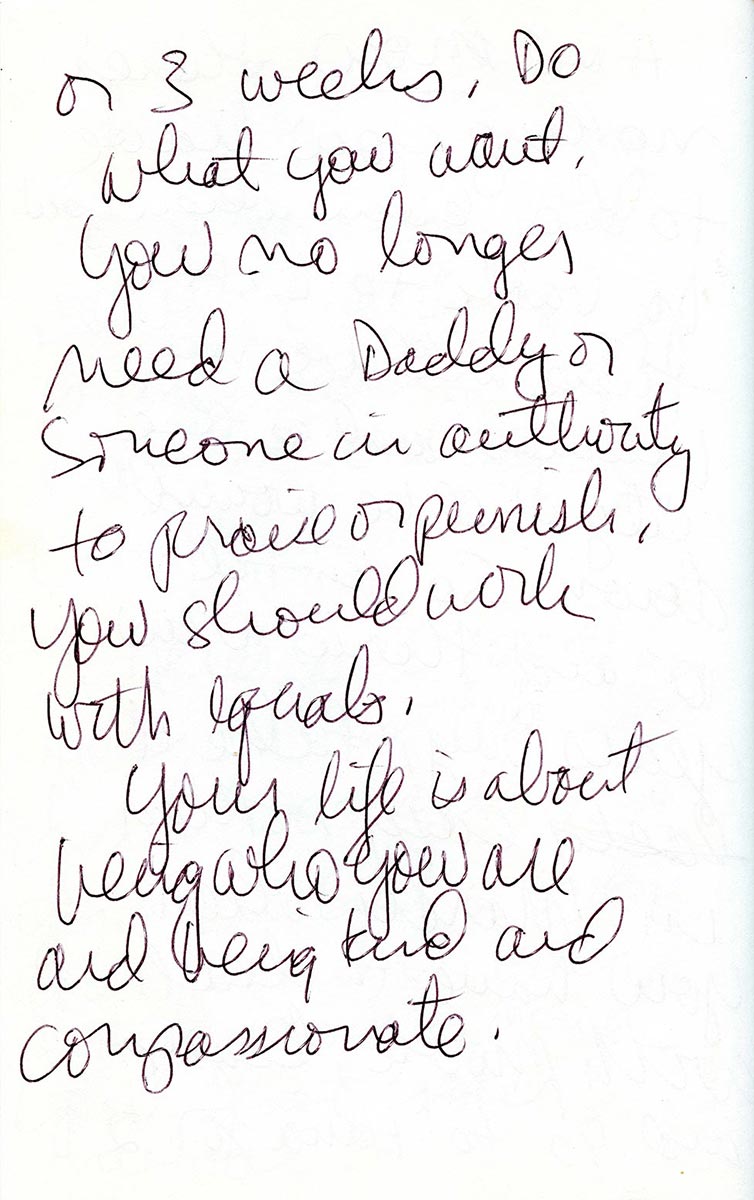 or 3 weeks. Do
what you want.
You no longer
need a Daddy or
someone in authority
to praise or punish.
You should work
with equals.
Your life is about
being who you are
and being kind and
compassionate.